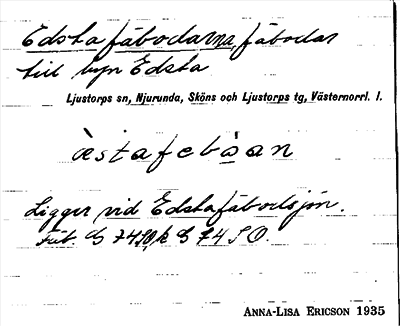 Edsta fäbodarna, fäbodar
till byn Edsta
Ljustorps sn, Njurunda, Sköns och Ljustorps tg, Västernorrl. l.
Ligger vid Edstafäbodsjön.
Fäb. G 74 SO.
ANNA-LISA ERICSON 1935